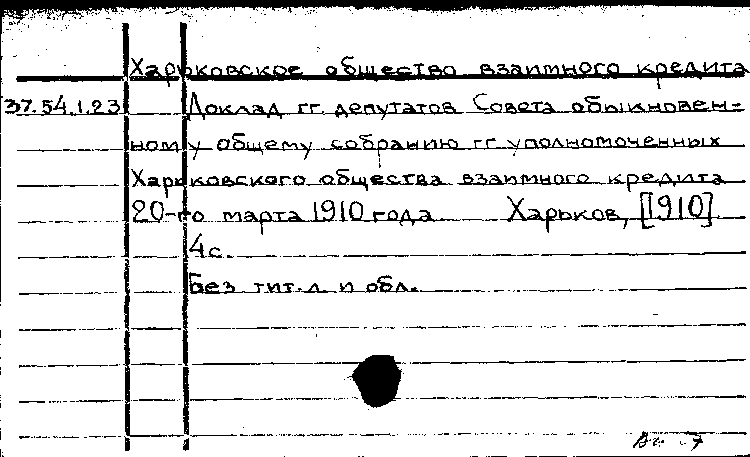 Харьковское общество взаимного кредита
37.54.1.23 Доклад гг. депутатов Совета обыкновен=
ному общему собранию гг уполномоченных
Харьковского общества взаимного кредита
20-го марта 1910 года Харьков, [1910]
4с.
Без тит. л. и обл.